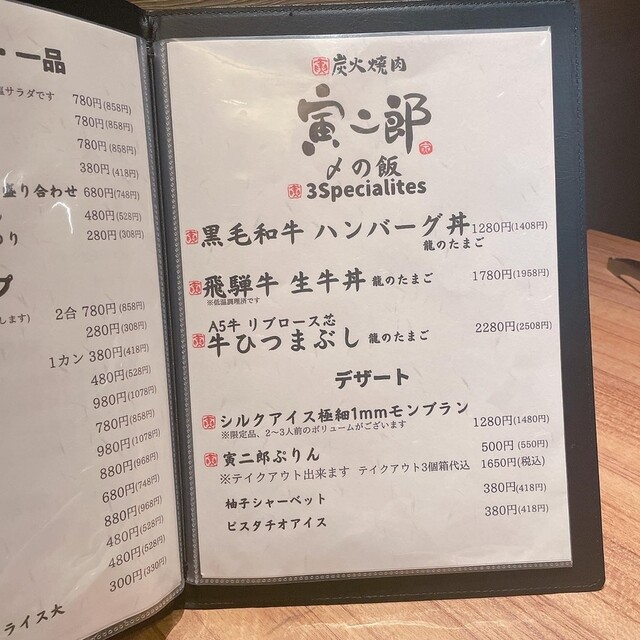 ・一品
塩サラダです 780円(858円)
780円(858円)
780円(858円)
380円(418円)
盛り合わせ 680円(748円)
480円(528円)
280円(308円)
プ
します) 2合 780円(858円)
280円(308円)
1カン 380円(418円)
480円(528円)
980円(1078円)
780円(858円)
980円(1078円)
880円(968円)
680円(748円)
880円(968円)
480円(528円)
480円(528円)
300円(330円)
ライス大
炭火焼肉
寅二郎
〆の飯
3Specialites
黒毛和牛 ハンバーグ丼 1280円(1408円)
龍のたまご
飛騨牛 生牛丼 龍のたまご 1780円(1958円)
※低温調理済です
A5牛 リブロース芯
牛ひつまぶし 龍のたまご 2280円(2508円)
デザート
シルクアイス極細1mmモンブラン 1280円(1480円)
※限定品、2〜3人前のボリュームがございます
寅二郎ぷりん 500円(550円)
※テイクアウト出来ます テイクアウト3個箱代込 1650円(税込)
柚子シャーベット 380円(418円)
ピスタチオアイス 380円(418円)